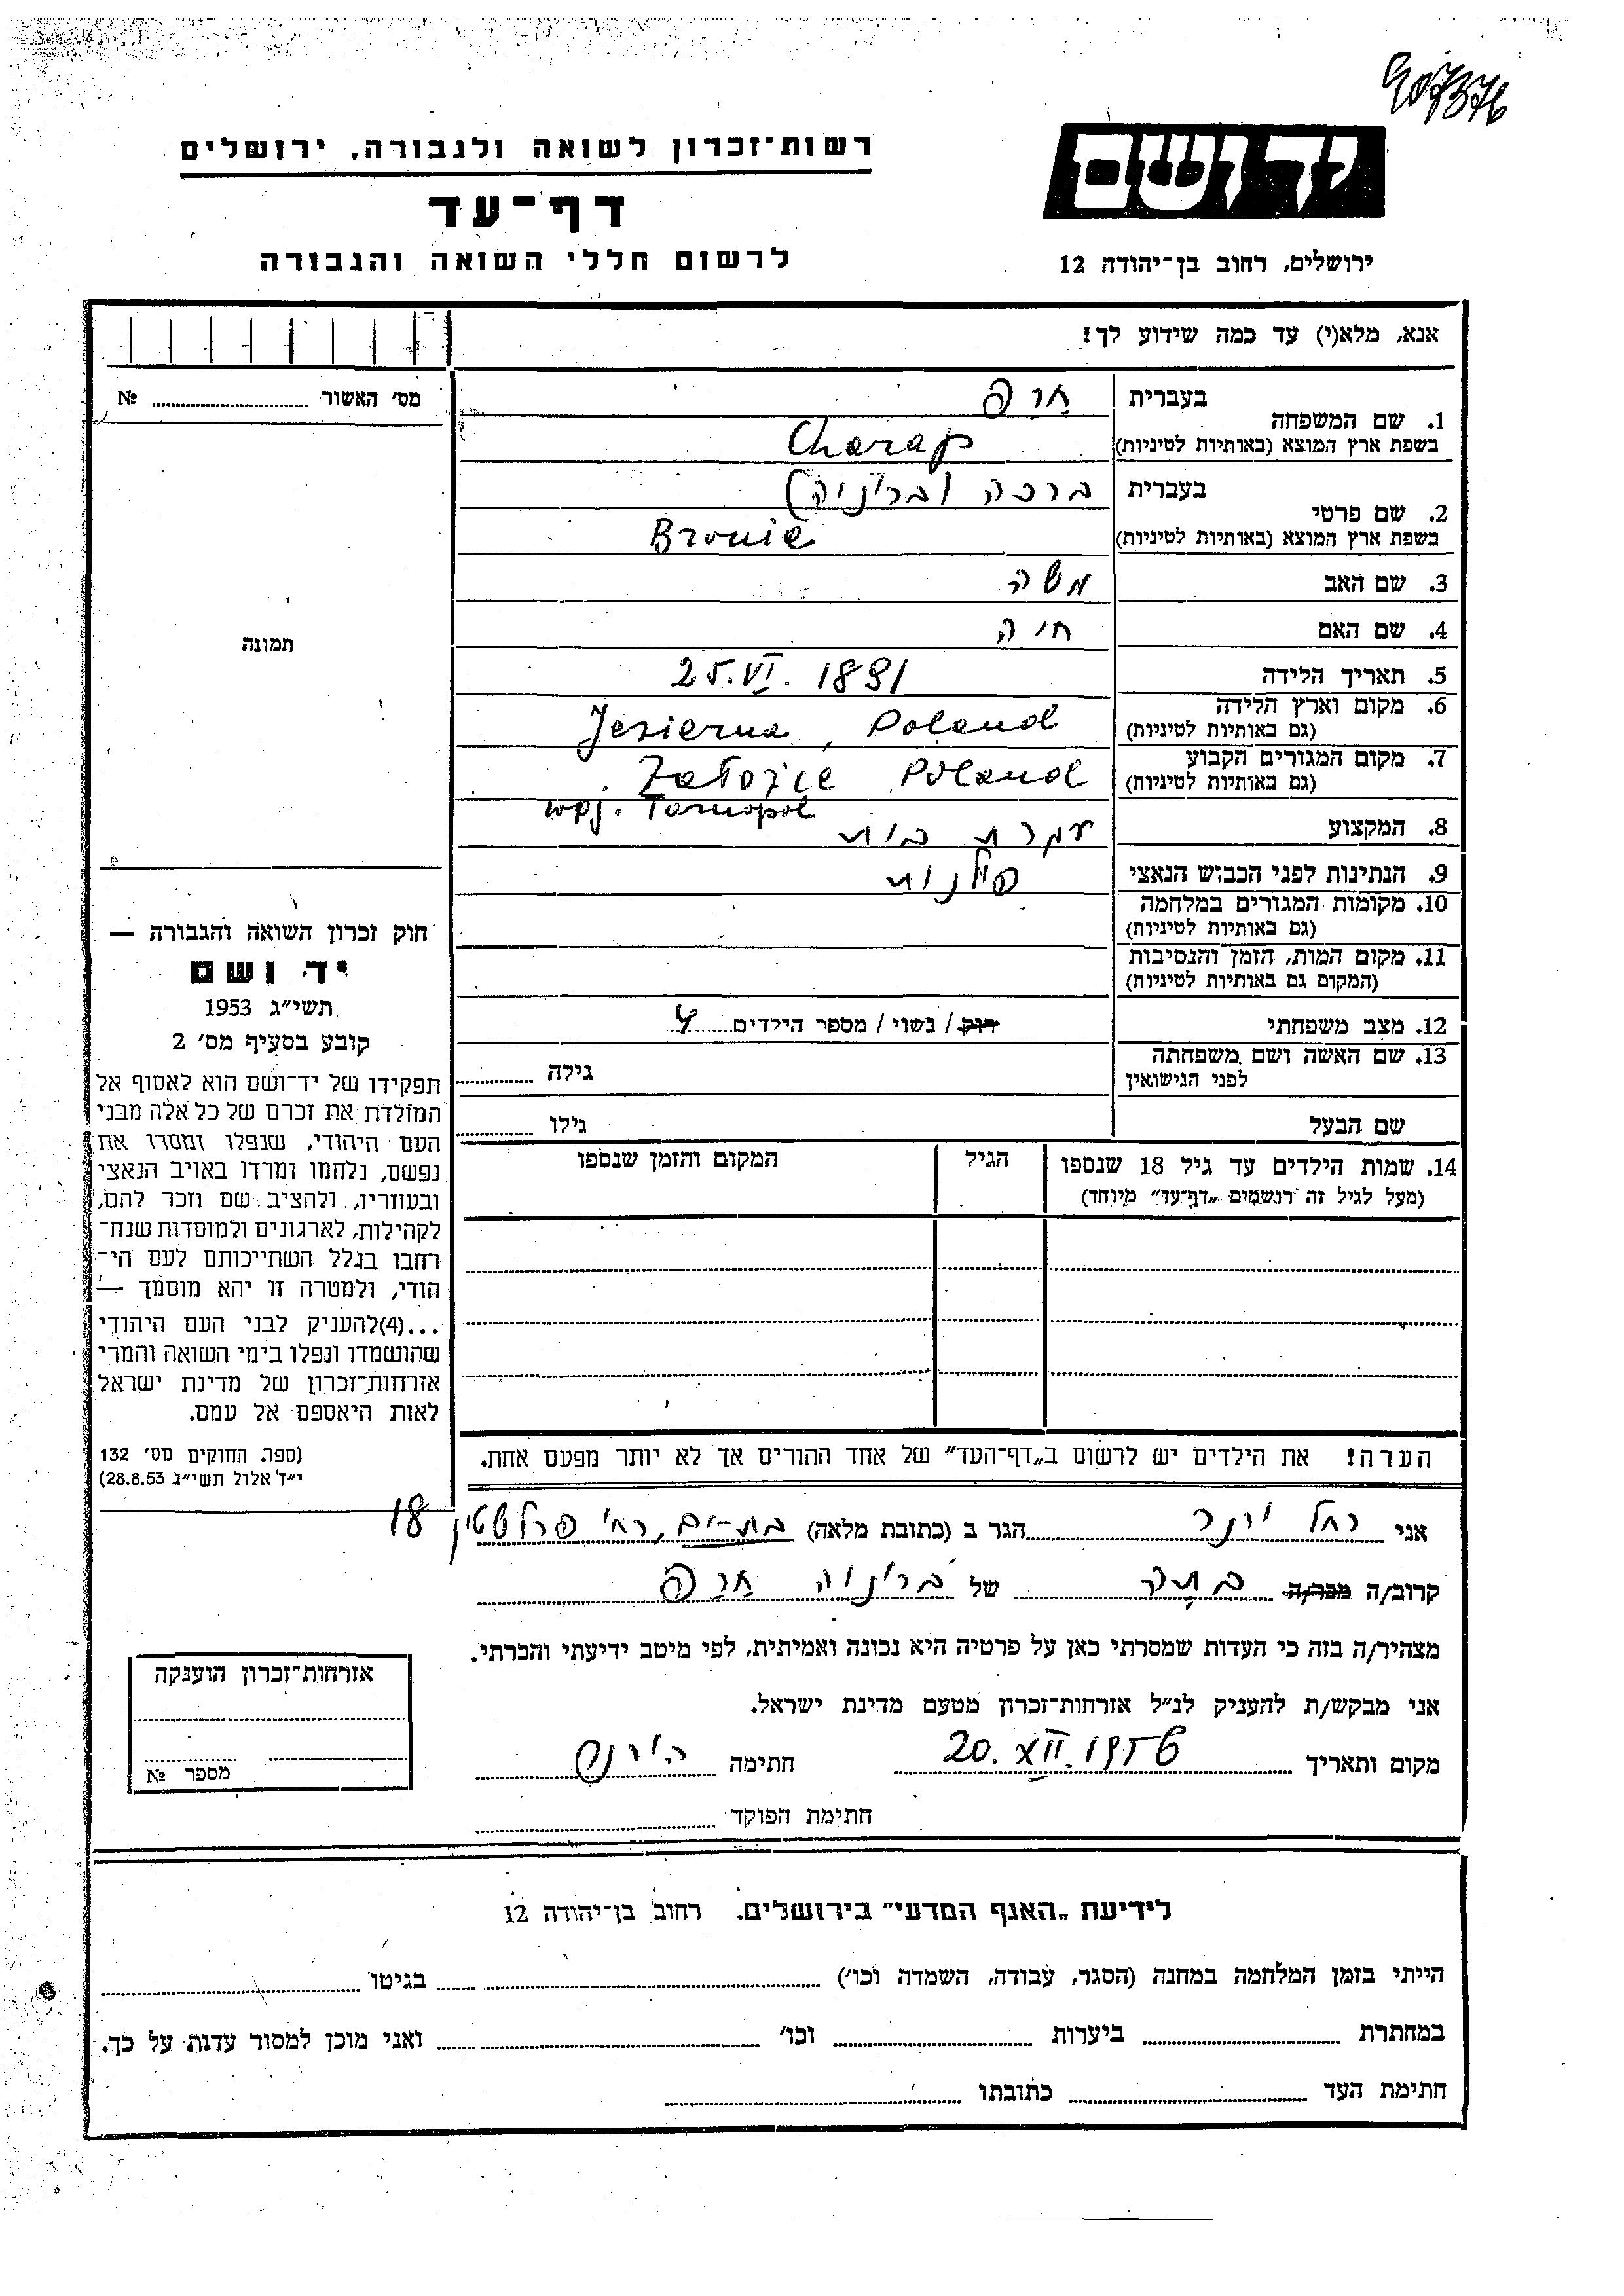 907376
יד ושם
ירושלים, רחוב בן־יהודה 12
רשות־זכרון לשואה ולגבורה, ירושלים
דף־עד
לרשום חללי השואה והגבורה
אנא, מלא(י) עד כמה שידוע לך!
1. שם המשפחה
בעברית
חרפ
בשפת ארץ המוצא (באותיות לטיניות)
Charap
2. שם פרטי
בעברית
ברכה (ברוניה)
בשפת ארץ המוצא (באותיות לטיניות)
Bronie
3. שם האב
משה
4. שם האם
חיה
5. תאריך הלידה
25.VI. 1891
6. מקום וארץ הלידה
(גם באותיות לטיניות)
Jezierna, Poland
7. מקום המגורים הקבוע
(גם באותיות לטיניות)
Załoźce Poland
woj. Tarnopol
8. המקצוע
עקרת בית
9. הנתינות לפני הכבוש הנאצי
פולנית
10. מקומות המגורים במלחמה
(גם באותיות לטיניות)
11. מקום המות, הזמן והנסיבות
(המקום גם באותיות לטיניות)
12. מצב משפחתי
רוק / נשוי / מספר הילדים 4
13. שם האשה ושם משפחתה
לפני הנישואין
גילה
שם הבעל
גילו
14. שמות הילדים עד גיל 18 שנספו
(מעל לגיל זה רושמים „דף־עד” מיוחד)
הגיל
המקום והזמן שנספו
הערה! את הילדים יש לרשום ב„דף־העד” של אחד ההורים אך לא יותר מפעם אחת.
מס׳ האשור № 
תמונה
חוק זכרון השואה והגבורה —
יד ושם
תשי״ג 1953
קובע בסעיף מס׳ 2
תפקידו של יד־ושם הוא לאסוף אל
המולדת את זכרם של כל אלה מבני
העם היהודי, שנפלו ומסרו את
נפשם, נלחמו ומרדו באויב הנאצי
ובעוזריו, ולהציב שם וזכר להם,
לקהילות, לארגונים ולמוסדות שנח־
רחבו בגלל השתייכותם לעם הי־
הודי, ולמטרה זו יהא מוסמך —
...(4)להעניק לבני העם היהודי
שהושמדו ונפלו בימי השואה והמרי
אזרחות־זכרון של מדינת ישראל
לאות היאספם אל עמם.
(ספר. החוקים מס׳ 132
י״ד אלול תשי״ג 28.8.53)
אני רחל הגר ב (כתובת מלאה) בת־ים, רח׳ 18
קרוב/ה מכר/ה של ברוניה חרפ
מצהיר/ה בזה כי העדות שמסרתי כאן על פרטיה היא נכונה ואמיתית, לפי מיטב ידיעתי והכרתי.
אני מבקש/ת להעניק לנ״ל אזרחות־זכרון מטעם מדינת ישראל.
מקום ותאריך 20. XII. 1956 חתימה
חתימת הפוקד
אזרחות־זכרון הוענקה
מספר №
לידיעת „האגף המדעי” בירושלים. רחוב בן־יהודה 12
הייתי בזמן המלחמה במחנה (הסגר, עבודה, השמדה וכו׳) בגיטו
במחתרת ביערות וכו׳ ואני מוכן למסור עדות על כך.
חתימת העד כתובתו